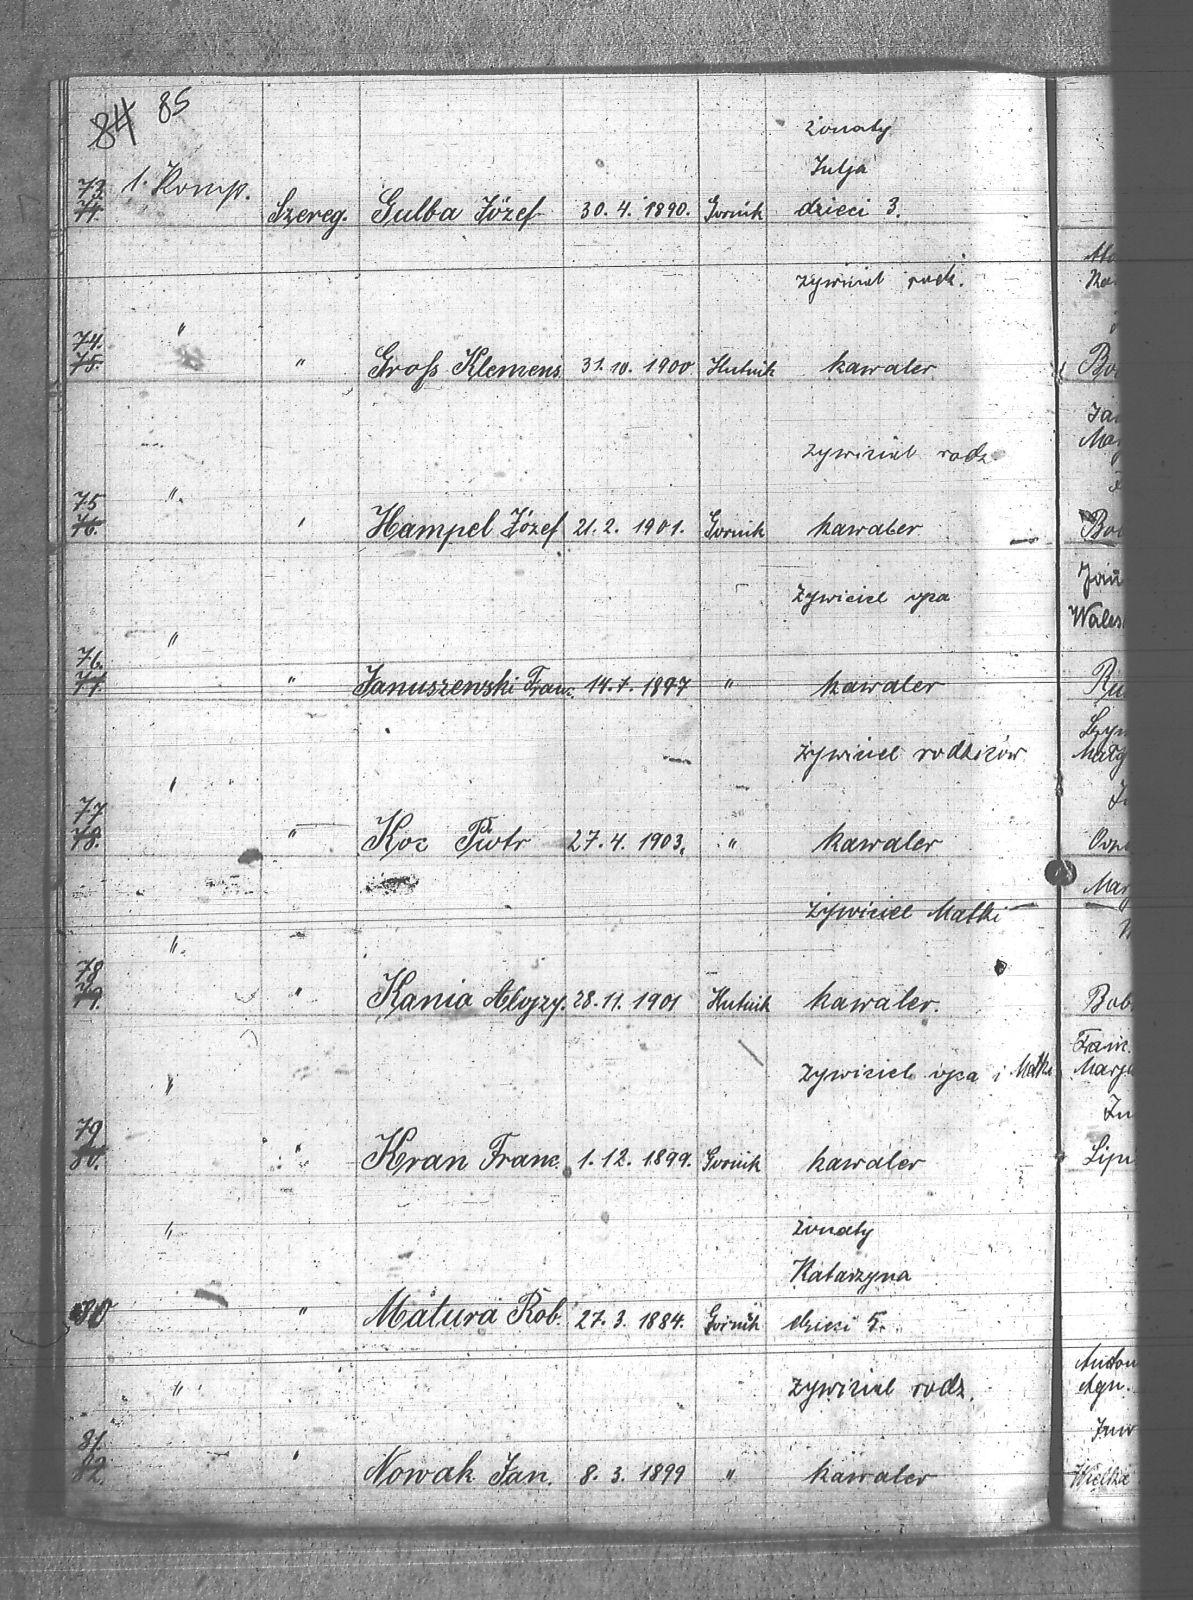 84 85
żonaty
Julja
73. 1. Komp.
71. Szereg. Gulba Józef 30. 4. 1890. Gornik dzieci 3.
żywiciel rodz.
74. "
75. " Groſs Klemens 31. 10. 1900 Hutnik kawaler
żywiciel rodz.
75 "
76. " Hampel Józef 21. 2. 1901. Gornik kawaler
żywiciel ojca
76. "
77. " Januszewski Franc. 14. 7. 1897 " kawaler
żywiciel rodziców
77 "
78. " Koc Piotr 27. 4. 1903. " kawaler
żywiciel Matki
78 "
79. " Kania Alojzy. 28. 11. 1901 Hutnik kawaler.
żywiciel ojca i Matki
79 "
80. " Kran Franc. 1. 12. 1899. Gornik kawaler
" żonaty
Katarzyna
80 " Matura Rob. 27. 3. 1884. Górnik dzieci 5.
" żywiciel rodz.
81.
82. " Nowak Jan. 8. 3. 1899 " kawaler
Wielka